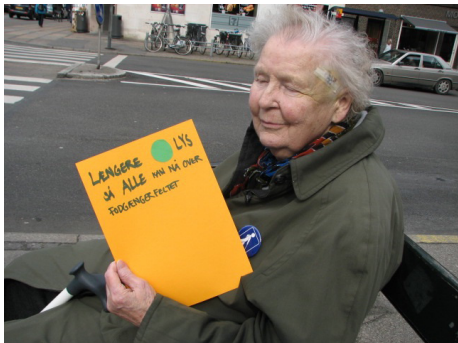 LÆNGERE LYS
SÅ ALLE KAN NÅ OVER
FODGÆNGERFELTET